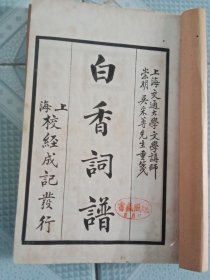 上海交通大學文學講師
崇明吳采尊先生重箋
白香詞譜
上海
校經成記發行